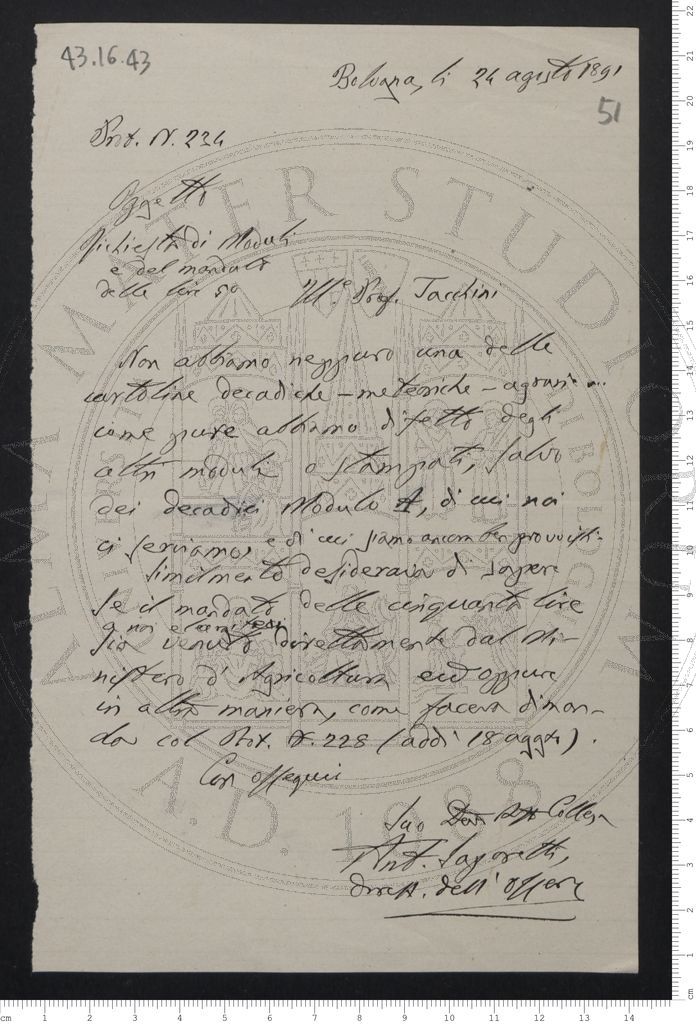 43.16.43
Bologna, li 24 agosto 1891
51
Prot. N. 234
Oggetto
Richiesta di Moduli
e del mandato
delle lire 50
Ill.e Prof. Tacchini
Non abbiamo neppure una delle
cartoline decadiche-meteoriche-agrarie
come pure abbiamo difetto degli
altri moduli o stampati, salvo
dei decadici Modulo A, di cui noi
ci serviamo, e di cui siamo ancora ben provvisti.
Similmente desiderava di sapere
se il mandato delle cinquanta lire
a noi
sia venuto direttamente dal Mi-
nistero d'Agricoltura ed oppure
in altra maniera, come faceva diman-
da col Prot. N. 228 (addì 18 aggto).
Con ossequii
Suo Collega
Ant. Saporetti,
Dirett. dell'Osserv
ALMA MATER STUDIORUM
A.D. 1088